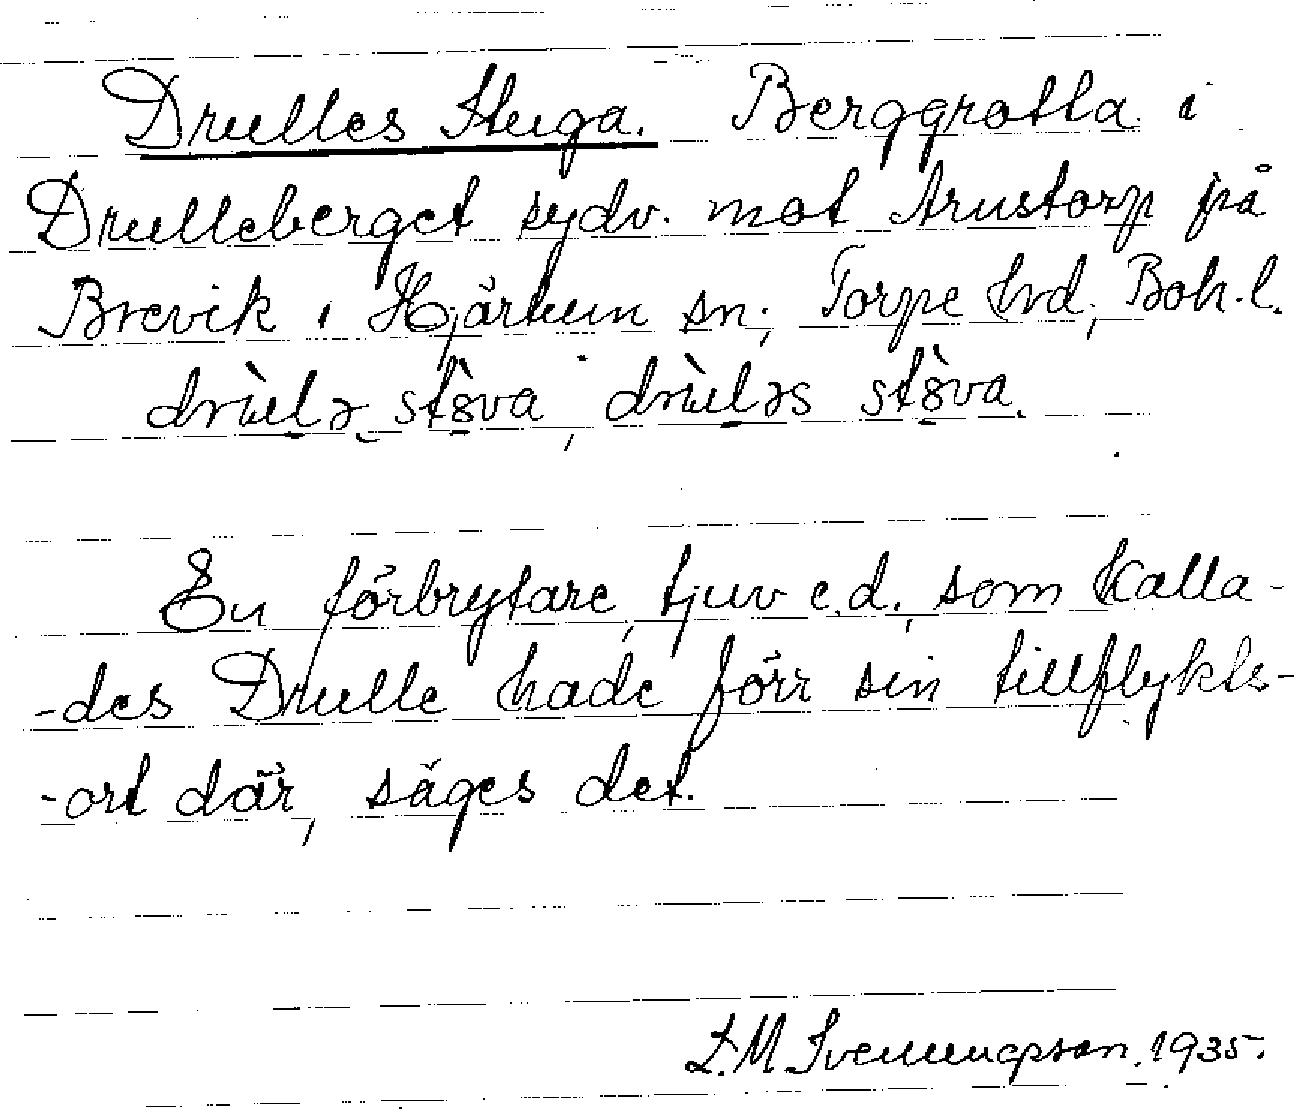 Drulles Stuga. Berggrotta i
Drulleberget sydv. mot Arustorp på
Brevik i Hjärtum sn; Torpe hrd, Boh. l.
drùlə stöva, drùləs stöva.
En förbrytare, tjuv e.d., som kalla-
-des Drulle hade förr sin tillflykts-
-ort där, säges det.
L.M. Svenungsson. 1935.